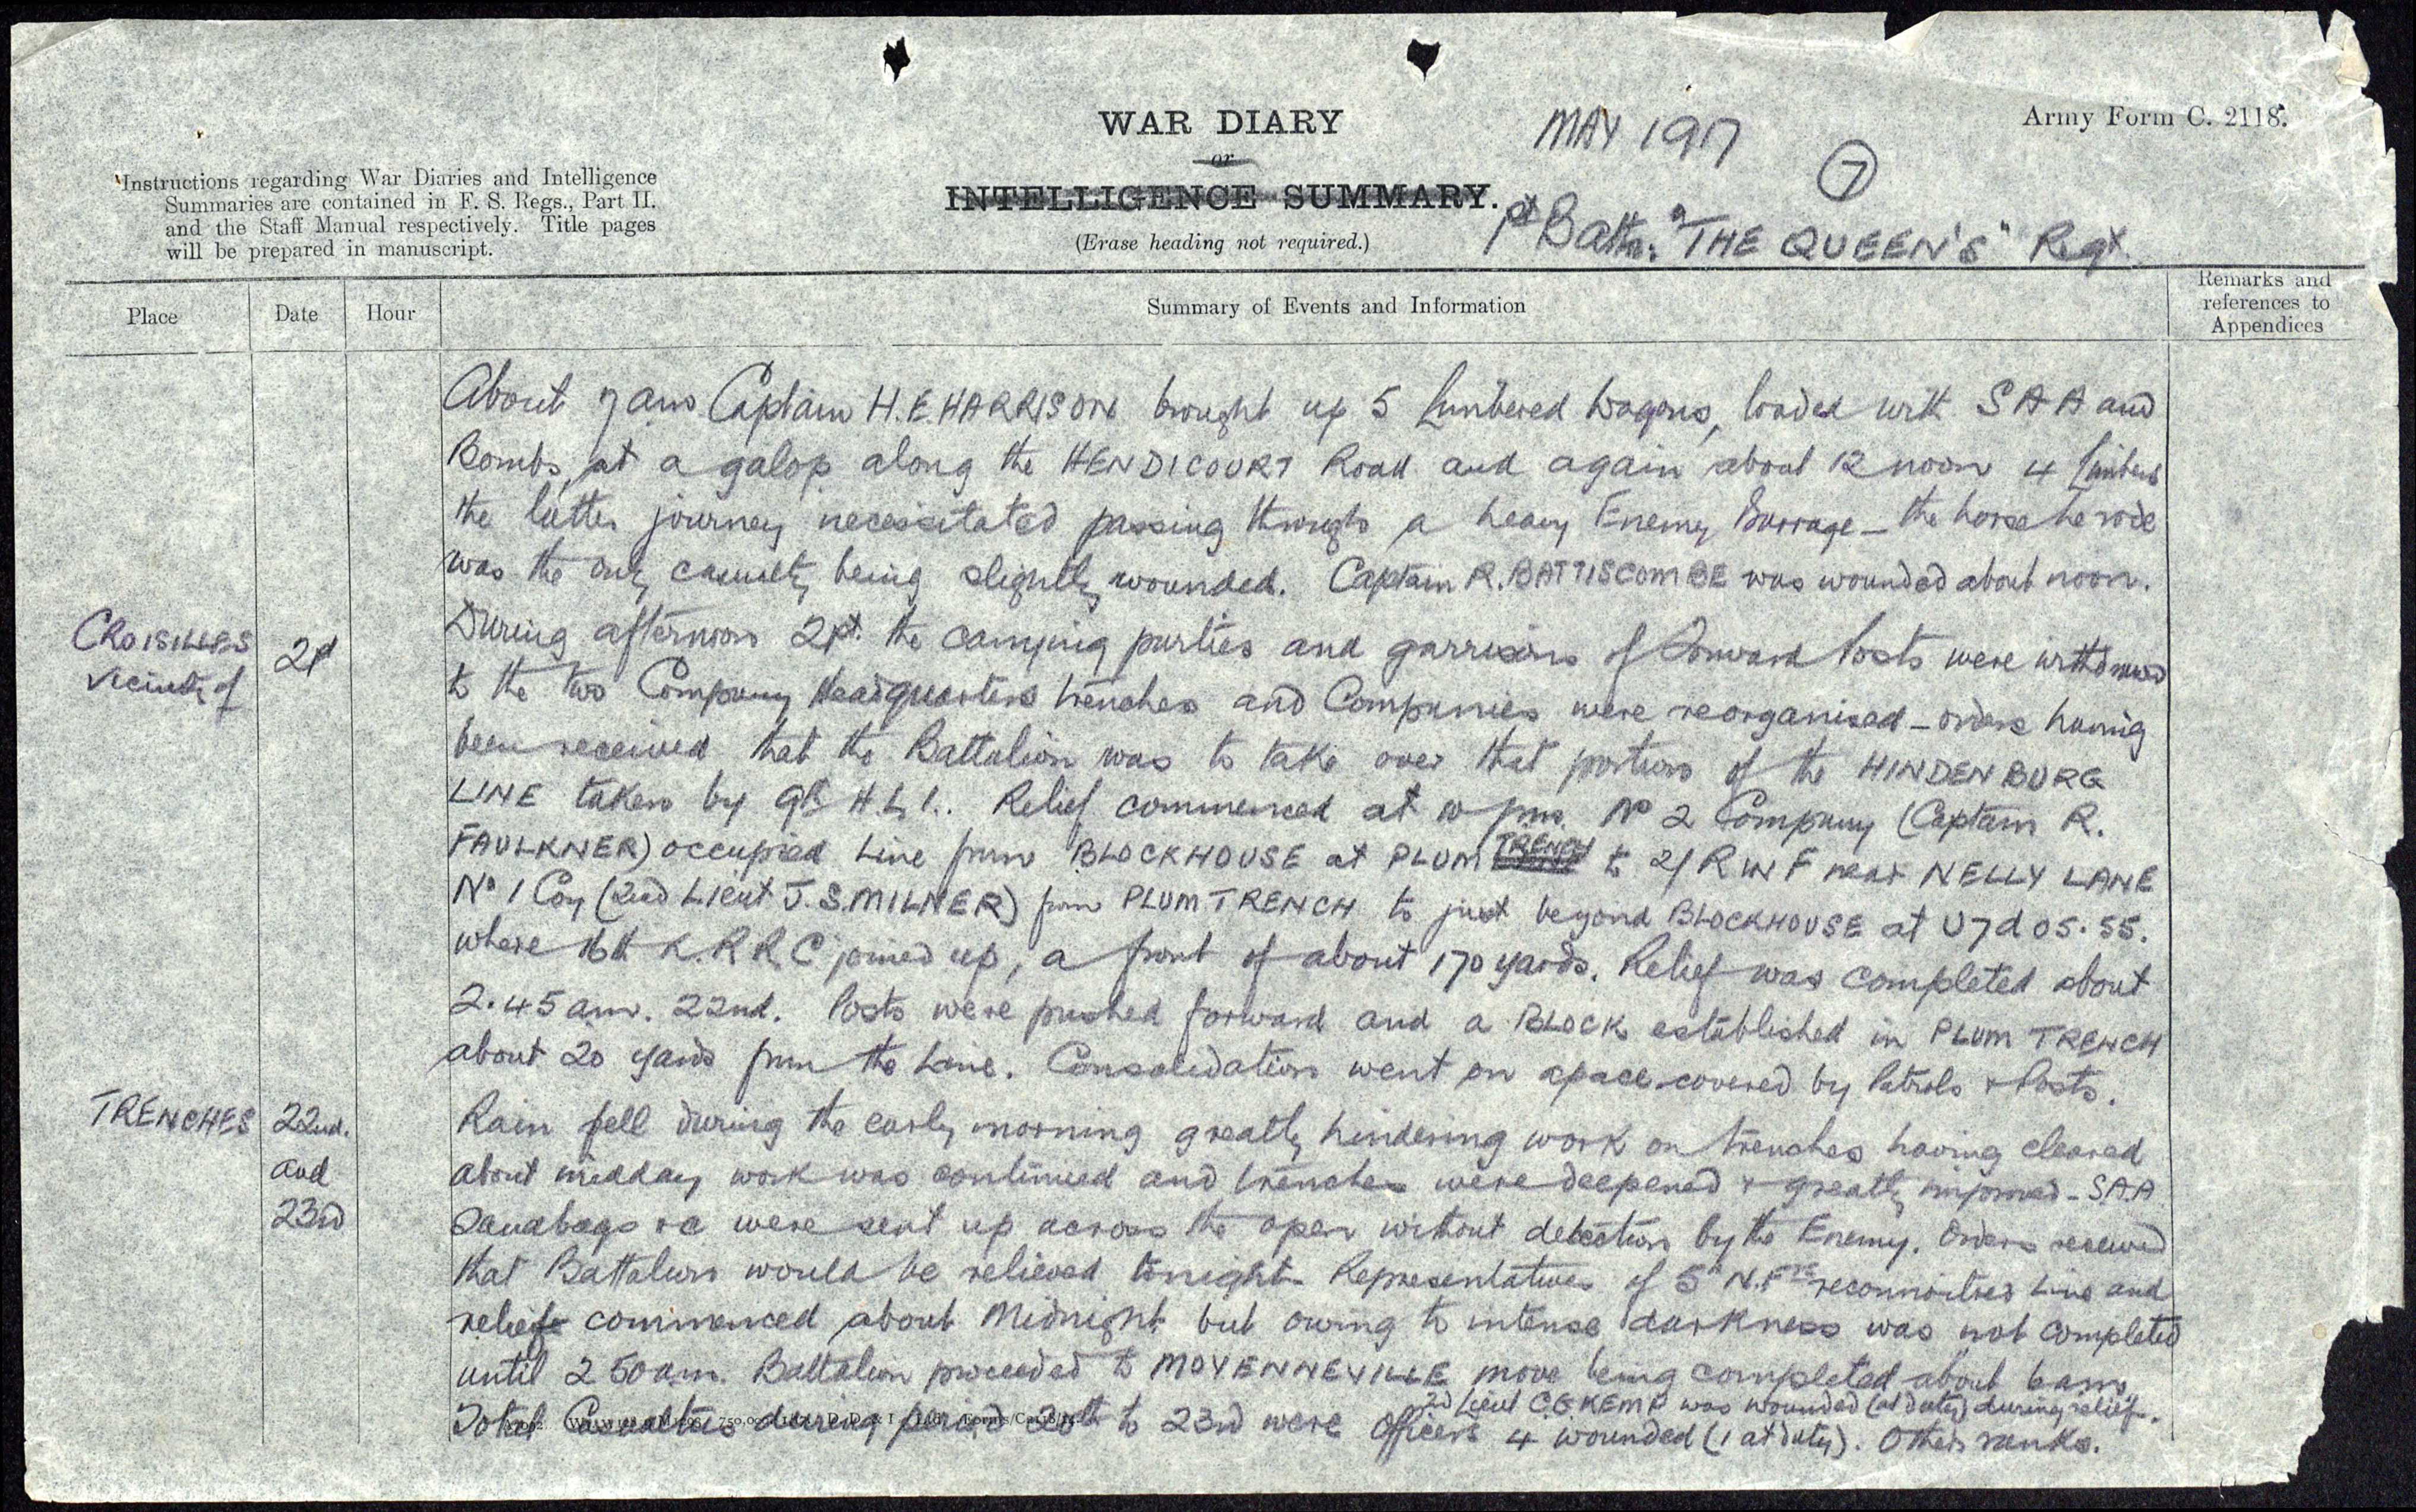 WAR DIARY
or
INTELLIGENCE SUMMARY.
(Erase heading not required.)
MAY 1917
7
1st Battn: "THE QUEEN'S" Regt.
Army Form C. 2118.
Instructions regarding War Diaries and Intelligence
Summaries are contained in F. S. Regs., Part II.
and the Staff Manual respectively. Title pages
will be prepared in manuscript.
Place
Date
Hour
Summary of Events and Information
Remarks and
references to
Appendices
About 7 am Captain H.E. HARRISON brought up 5 Limbered Wagons, loaded with S A A and
Bombs, at a galop along the HENDICOURT Road and again about 12 noon 4 Limbers
the latter journey necessitated passing through a heavy Enemy Barrage - the horse he rode
was the only casualty being slightly wounded. Captain R. BATTISCOMBE was wounded about noon.
CROISILLES
vicinity of
21st
During afternoon 21st. the carrying parties and garrisons of Forward Posts were withdrawn
to the two Company Headquarters trenches and Companies were reorganised - orders having
been received that the Battalion was to take over that portion of the HINDENBURG
LINE taken by 9th H.L.I.. Relief commenced at 10 pm. No 2 Company (Captain R.
FAULKNER) occupied Line from BLOCKHOUSE at PLUM TRENCH to 2/ R W F near NELLY LANE
No 1 Coy (2nd Lieut J.S. MILNER) from PLUM TRENCH to just beyond BLOCKHOUSE at U7d 05.55.
where 16th K.R.R.C joined up, a front of about 170 yards. Relief was completed about
2.45 am. 22nd. Posts were pushed forward and a BLOCK established in PLUM TRENCH
about 20 yards from the Line. Consolidation went on apace covered by Patrols & Posts.
TRENCHES
22nd.
and
23rd
Rain fell during the early morning greatly hindering work on trenches having cleared
about midday work was continued and trenches were deepened & greatly improved - S.A.A
Sandbags &c were sent up across the open without detection by the Enemy. Orders received
that Battalion would be relieved tonight. Representatives of 5th N.Frs reconnoitred Line and
relief commenced about Midnight but owing to intense darkness was not completed
until 2 50 am. Battalion proceeded to MOYENNEVILLE move being completed about 6 am
2d Lieut C.G KEMP was wounded (at duty) during relief.
Total Casualties during period 20th to 23rd were Officers 4 wounded (1 at duty). Other ranks.